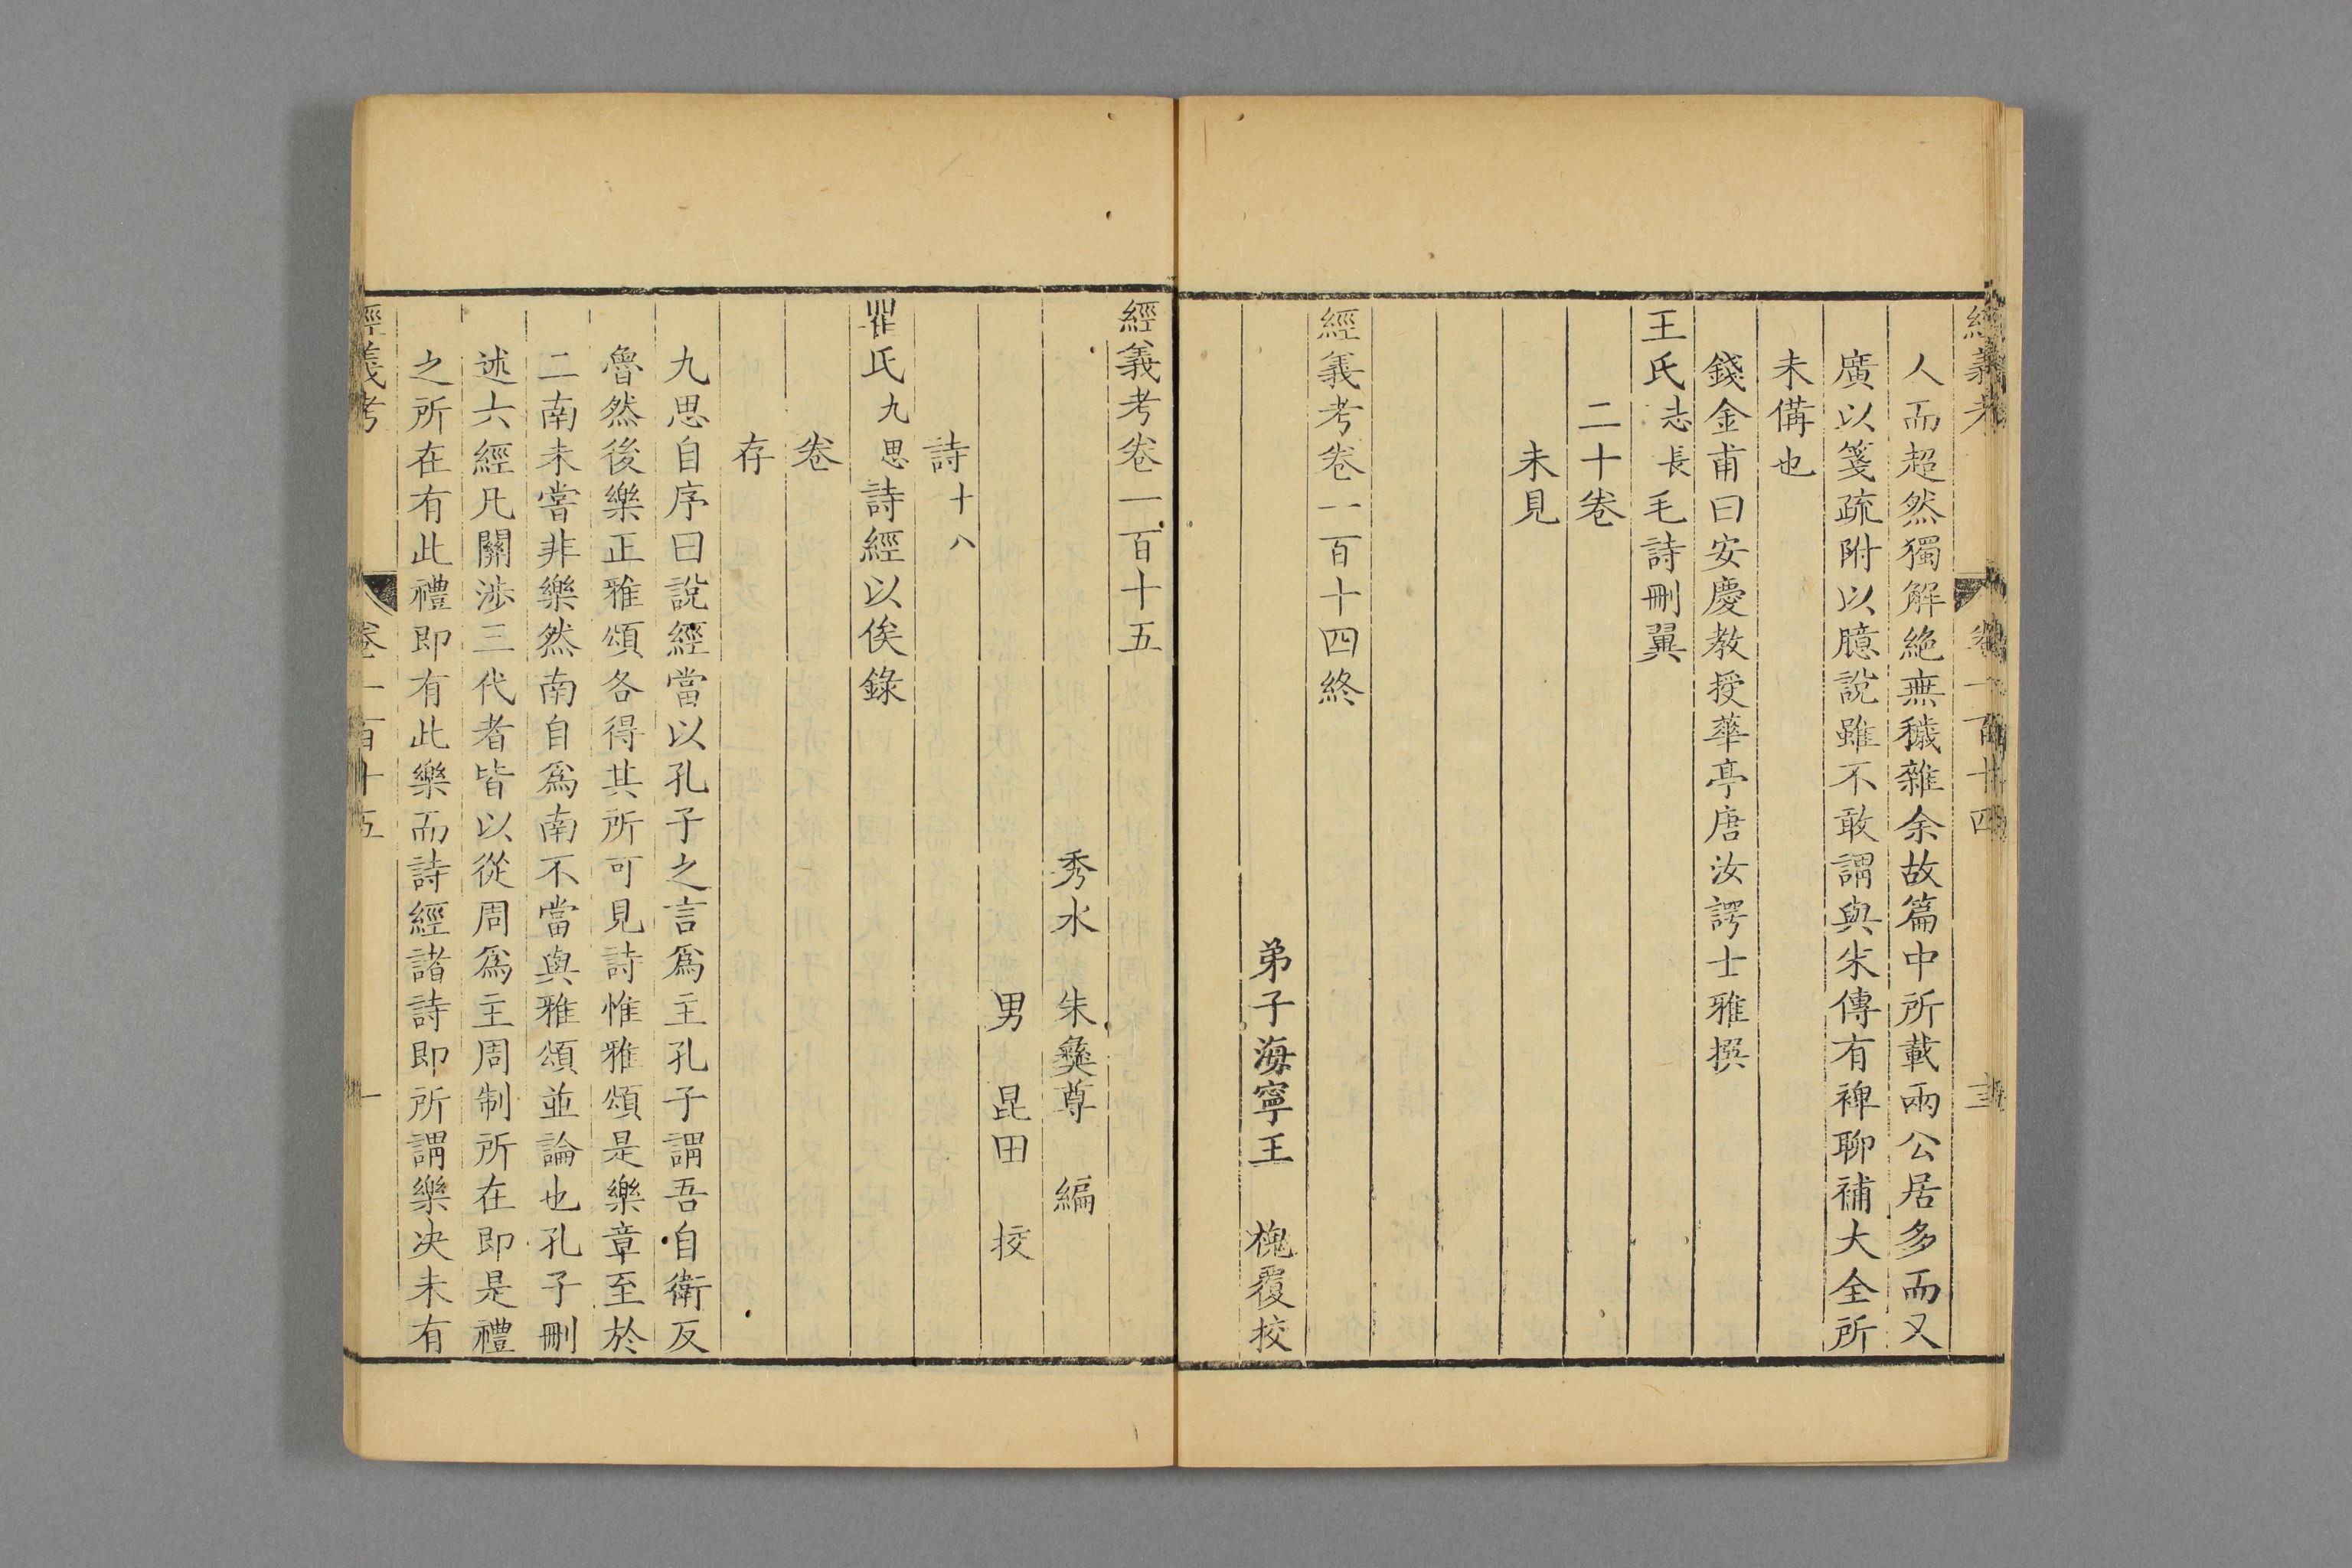 經義考 卷一百十四
人而超然獨解絶無穢雜余故篇中所載兩公居多而又
廣以箋疏附以臆說雖不敢謂與朱傳有裨聊補大全所
未備也
錢金甫曰安慶教授華亭唐汝諤士雅撰
王氏志長毛詩刪翼
二十卷
未見
經義考卷一百十四終
弟子海寧王 槐覆挍
經義考卷一百十五
秀水 朱彝尊 編
男 昆田 挍
詩十八
瞿氏九思詩經以俟錄
卷
存
九思自序曰說經當以孔子之言爲主孔子謂吾自衛反
魯然後樂正雅頌各得其所可見詩惟雅頌是樂章至於
二南未嘗非樂然南自爲南不當與雅頌並論也孔子刪
述六經凡關涉三代者皆以從周爲主周制所在即是禮
之所在有此禮即有此樂而詩經諸詩即所謂樂决未有
經義考 卷一百十五 一